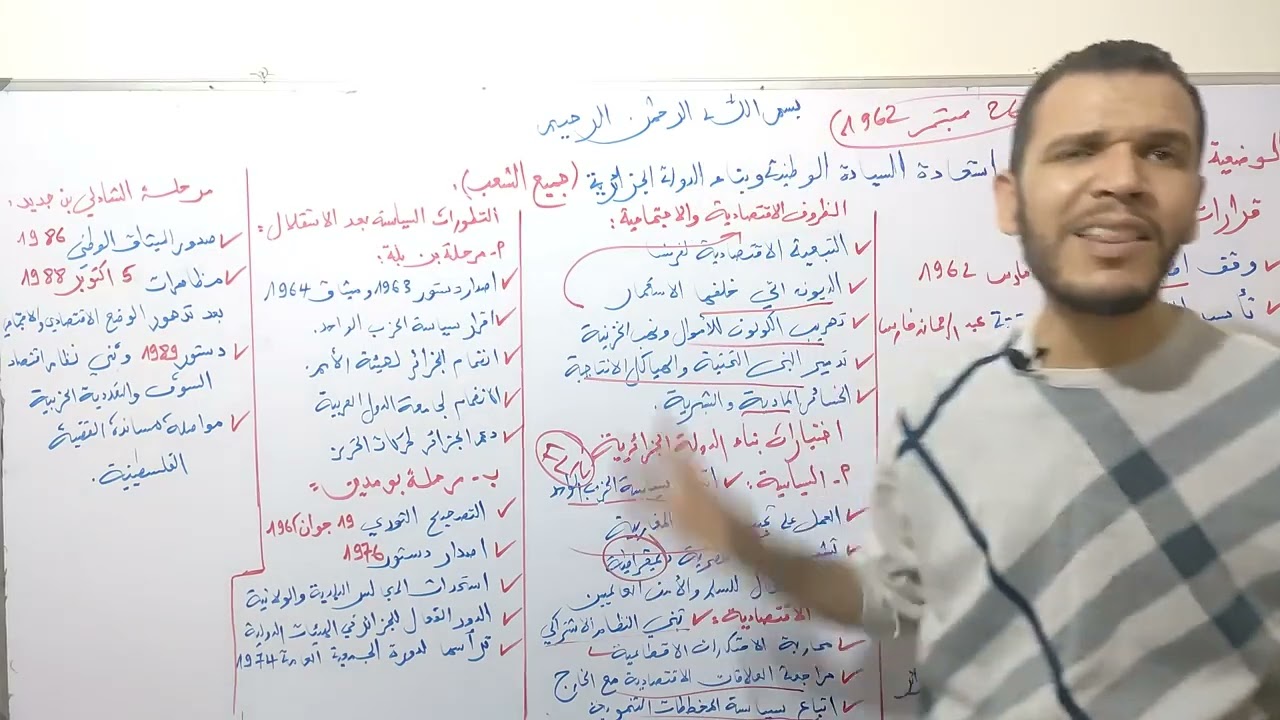 بسم الله الرحمن الرحيم
26 سبتمبر 1962)
الوضعية
استعادة السيادة الوطنية وبناء الدولة الجزائرية (جميع الشعب).
قرارات
✓ وقف
مارس 1962
✓ تأسيس
عبد الرحمان فارس
الظروف الاقتصادية والاجتماعية:
✓ التبعية الاقتصادية لفرنسا
✓ الديون التي خلفها الاستعمار
✓ تهريب الكولون للأموال ونهب الخزينة
✓ تدمير البنى التحتية والهياكل الانتاجية
✓ الخسائر المادية والبشرية.
اختيارات بناء الدولة الجزائرية
م- السياسية: ✓ سياسة الحزب الواحد
✓ العمل على المغاربية
الديمقراطية
للسلم والأمن العالميين.
الاقتصادية: ✓ تبني النظام الاشتراكي
✓ محاربة الاحتكارات الاقطاعية
✓ مراجعة العلاقات الاقتصادية مع الخارج
✓ اتباع سياسة المخططات التنموية
التطورات السياسية بعد الاستقلال:
م- مرحلة بن بلة:
✓ اصدار دستور 1963 وميثاق 1964
✓ اقرار سياسة الحزب الواحد.
✓ انضمام الجزائر لهيئة الأمم.
✓ الانضمام لجامعة الدول العربية
✓ دعم الجزائر لحركات التحرر
ب- مرحلة بومدين:
✓ التصحيح الثوري 19 جوان 1965
✓ اصدار دستور 1976
✓ استحداث المجالس البلدية والولائية
✓ الدور الفعال للجزائر في الهيئات الدولية
✓ ترأسها لدورة الجمعية العامة 1974
مرحلة الشاذلي بن جديد:
✓ صدور الميثاق الوطني 1986
✓ مظاهرات 5 اكتوبر 1988
بعد تدهور الوضع الاقتصادي والاجتماعي
✓ دستور 1989 وتبني نظام اقتصاد
السوق والتعددية الحزبية
✓ مواصلة مساندة القضية
الفلسطينية.